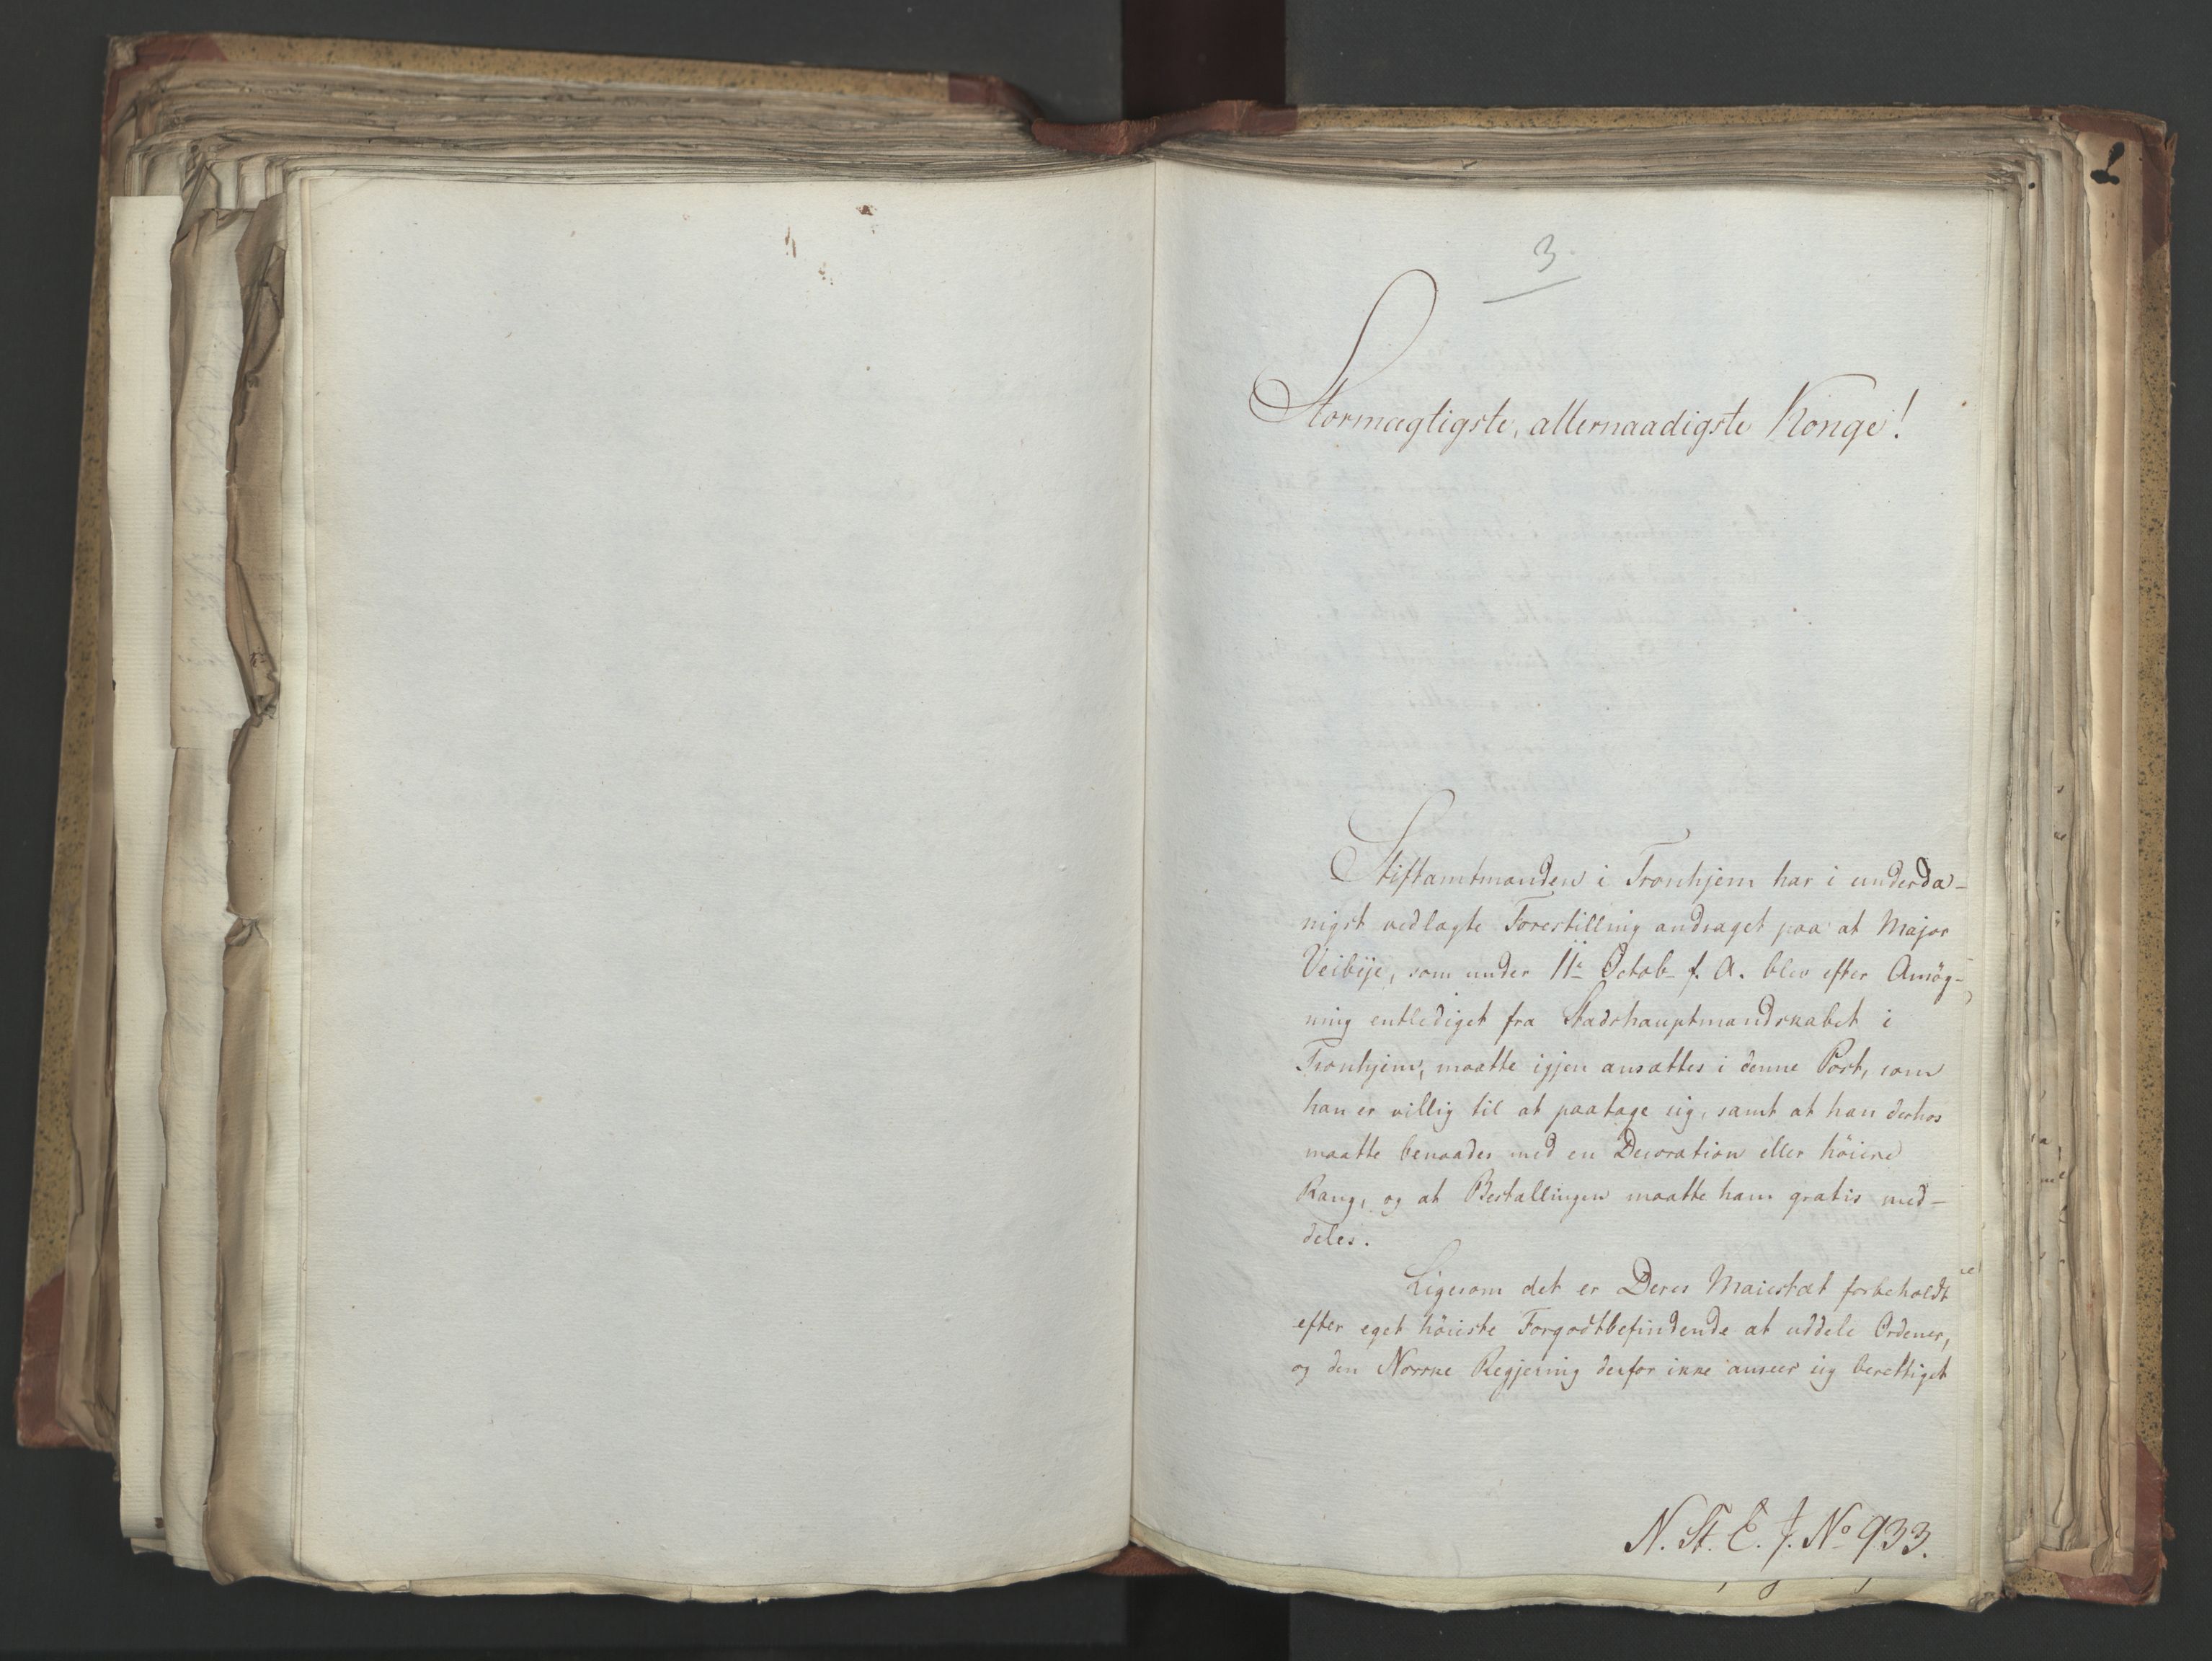 3
Stormægtigste, allernaadigste Konge!
Stiftamtmanden i Tronhjem har i underda-
nigst vedlagte Forestilling andraget paa at Major
Veibije, som under 11te Octob f. A. blev efter Ansög-
ning entlediget fra Stadshauptmandskabet i
Tronhjem, maatte igjen ansættes i denne Post, som
han er villig til at paatage sig, samt at han derhos
maatte benaades med en Decoration eller höiere
Rang, og at Bestallingen maatte ham gratis med-
deles.
Ligesom det er Deres Maiestæt forbeholdt
efter eget höieste Forgodtbefindende at uddele Ordener,
og den Norske Regjering derfor ikke anseer sig berettiget
N. St. E. J. No 933.